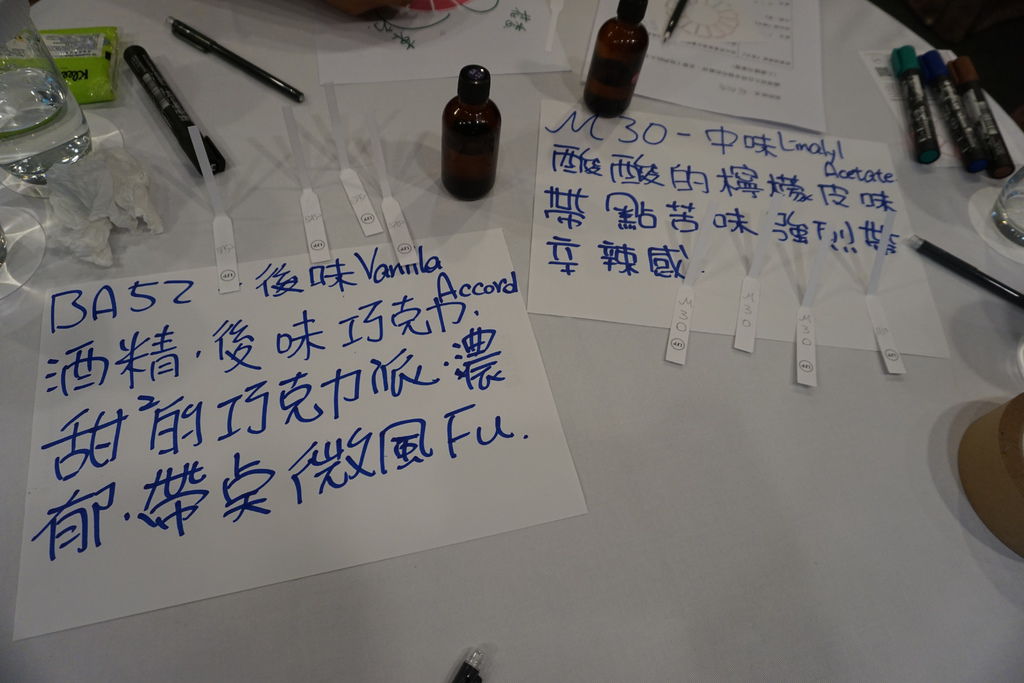 BA52 - 後味 Vanilla Accord
酒精·後味 巧克力.
甜²的巧克力派·濃
郁·帶点微風Fu.
M30 - 中味 Linalyl Acetate
酸酸的檸檬皮味
帶點苦味 強烈帶
辛辣感
M30
M30
M30